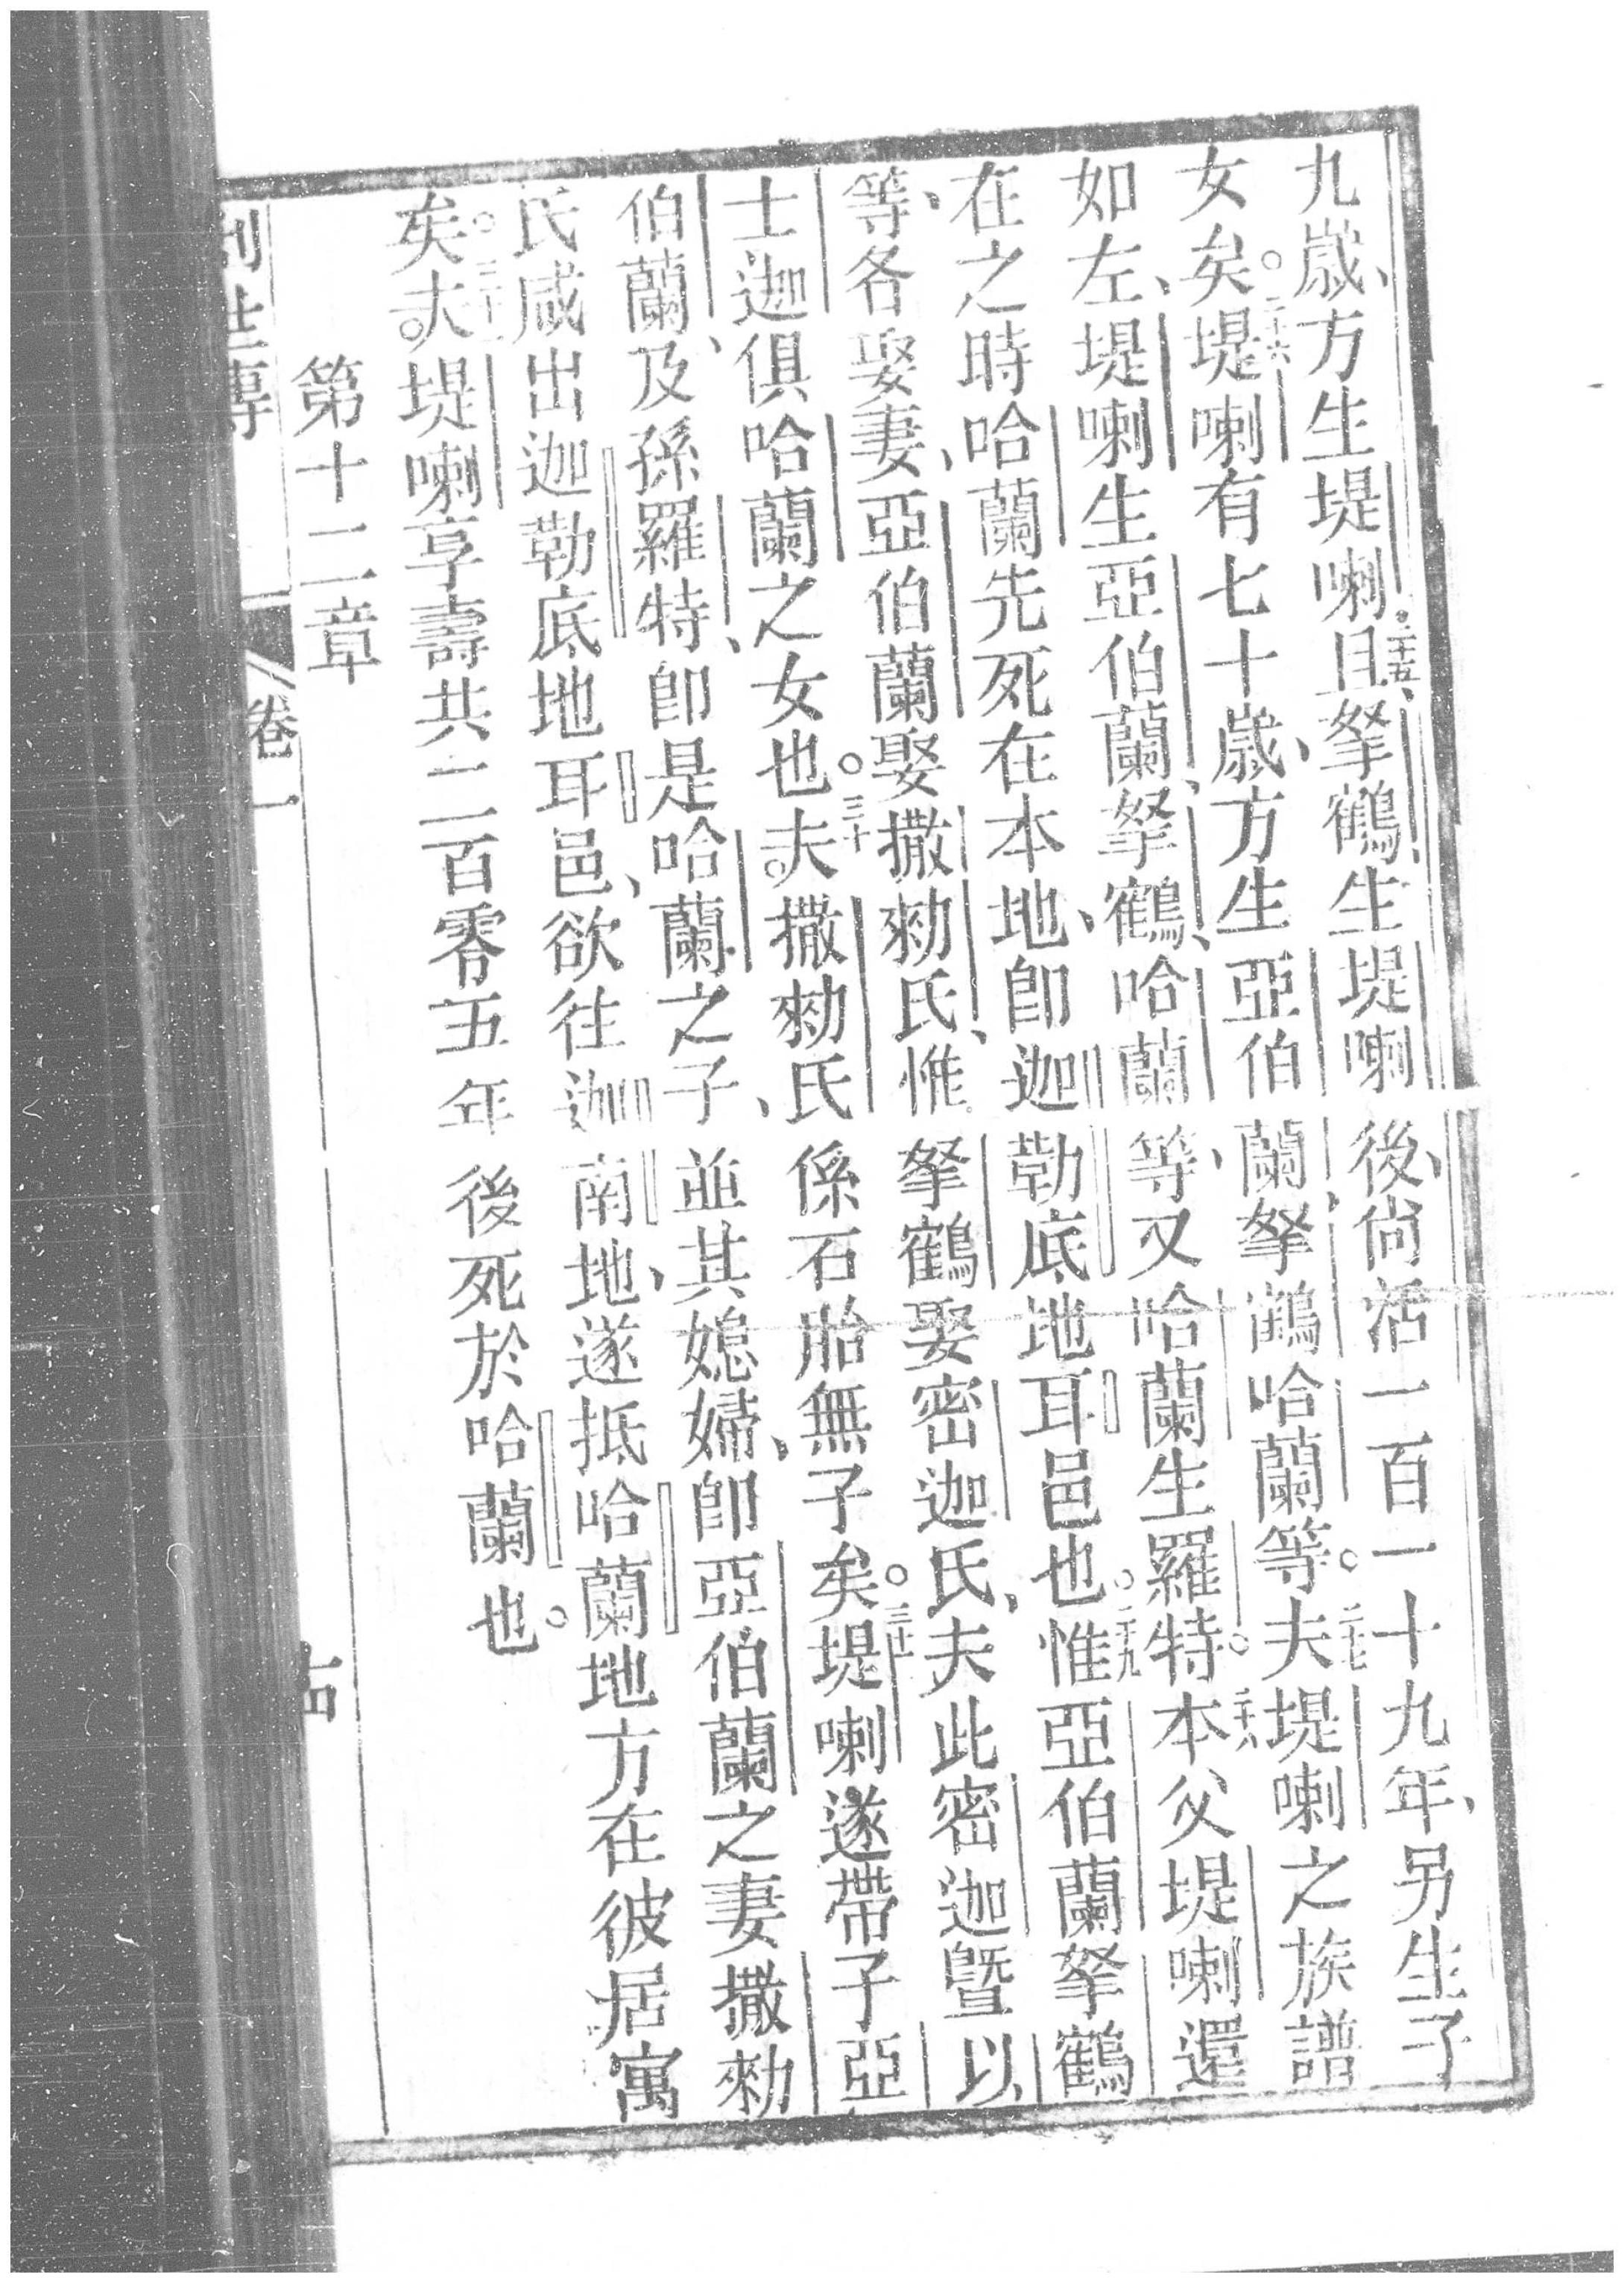 九歲、方生堤喇、二十五且拏鶴、生堤喇後、尙活一百一十九年、另生子
女矣。二十六堤喇有七十歲、方生亞伯蘭、拏鶴哈蘭等。二十七夫堤喇之族譜
如左、堤喇生亞伯蘭、拏鶴、哈蘭等、又哈蘭生羅特。二十八本父堤喇還
在之時哈蘭先死在本地、卽迦勒底地耳邑也。二十九惟亞伯蘭拏鶴
等、各娶妻、亞伯蘭娶撒勑氏、惟拏鶴娶密迦氏、夫此密迦曁以、
士迦俱哈蘭之女也。三十夫撒勑氏係石胎無子矣。三十一堤喇遂帶子亞
伯蘭、及孫羅特、卽是哈蘭之子、並其媳婦、卽亞伯蘭之妻撒勑
氏咸出迦勒底地耳邑、欲往迦南地、遂抵哈蘭地方在彼居寓
矣。三十二夫堤喇享壽共二百零五年後死於哈蘭也。
第十二章
創世傳 卷一